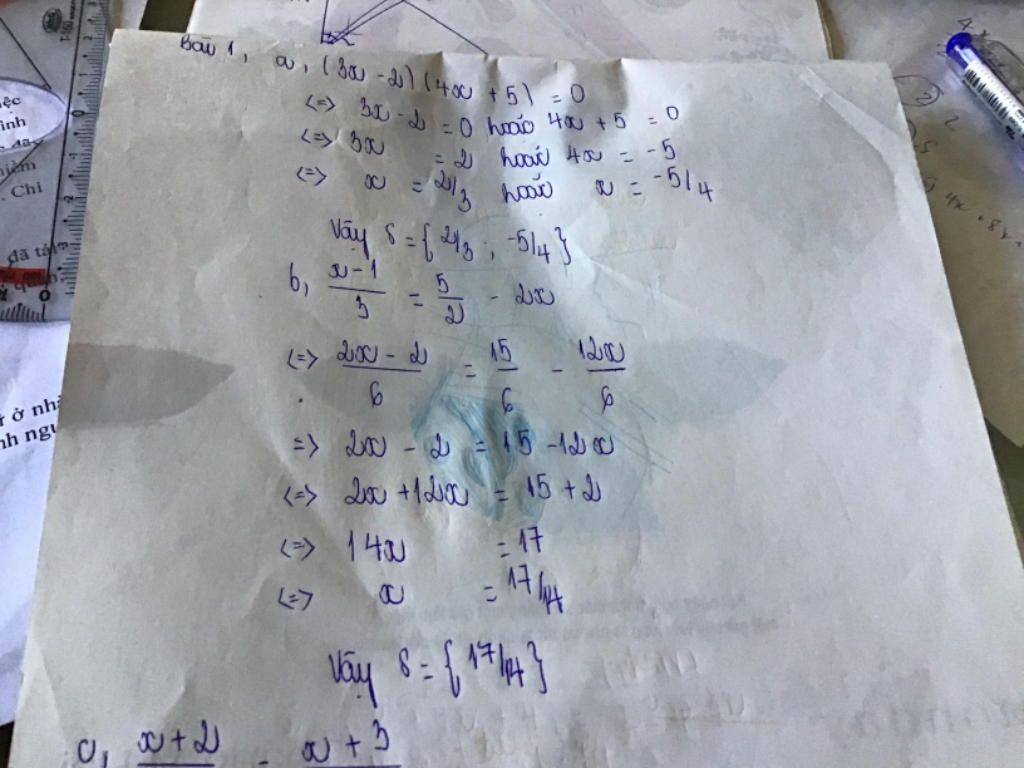 Bài 1, a, (3x - 2) (4x + 5) = 0
<=> 3x - 2 = 0 hoặc 4x + 5 = 0
<=> 3x = 2 hoặc 4x = -5
<=> x = 2/3 hoặc x = -5/4
Vậy S = {2/3 ; -5/4}
b, (x - 1)/3 = 5/2 - 2x
<=> (2x - 2)/6 = 15/6 - 12x/6
=> 2x - 2 = 15 - 12x
<=> 2x + 12x = 15 + 2
<=> 14x = 17
<=> x = 17/14
Vậy S = {17/14}
c, x + 2 - x + 3
Chi
đã
ở nhà